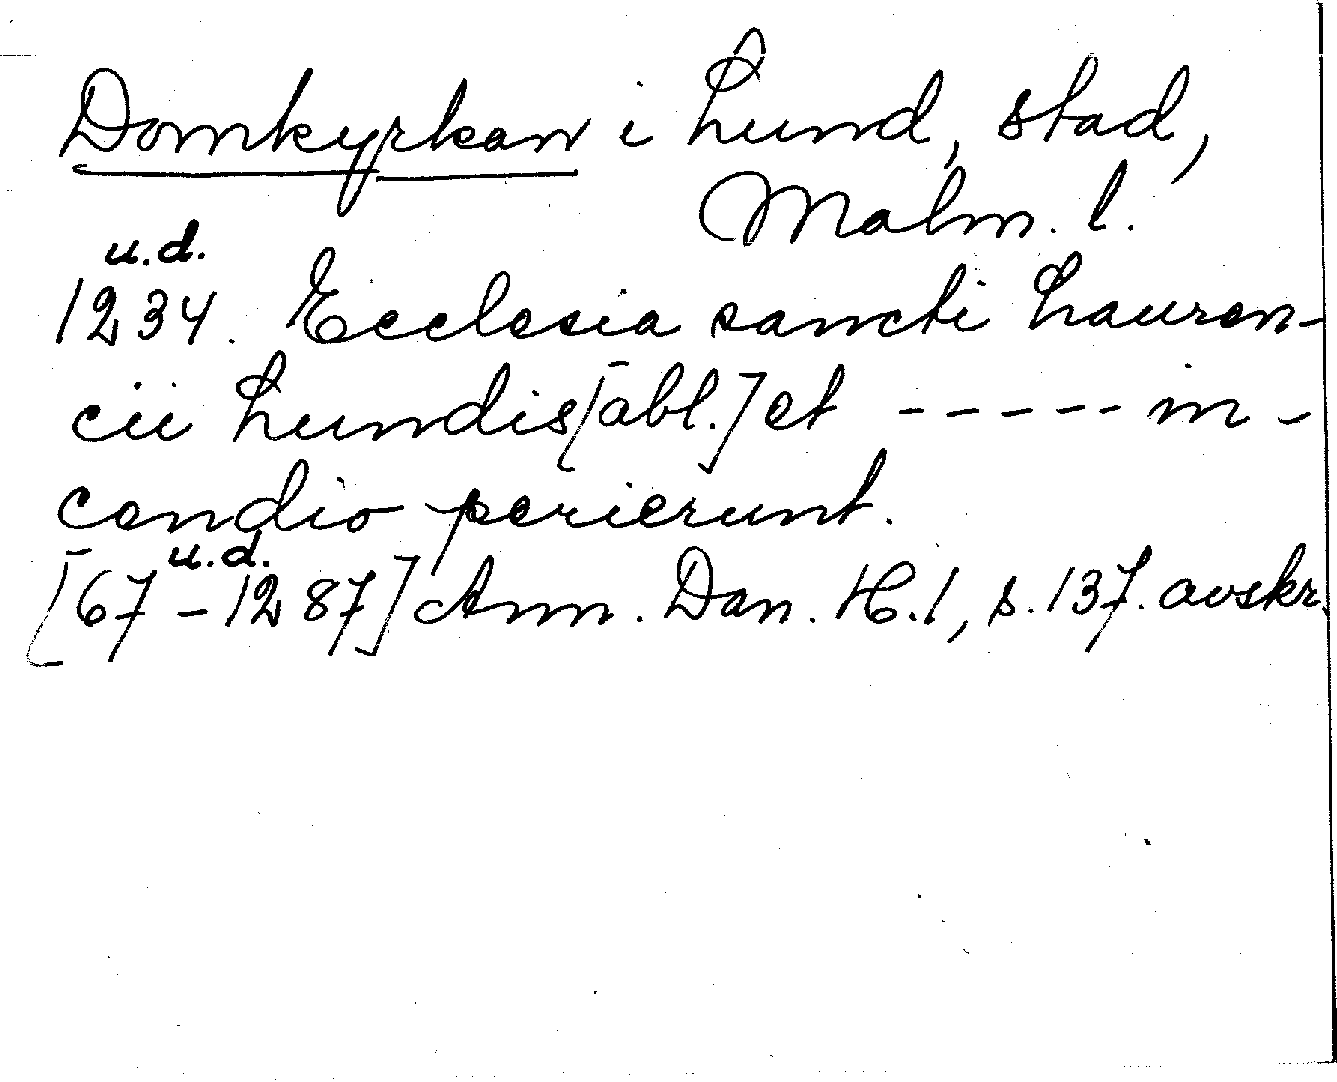 Domkyrkan i Lund, stad,
Malm. l.
u.d.
1234. Ecclesia sancti Lauren-
cii Lundis [abl.] et ----- in-
cendio perierunt.
u.d.
[67 - 1287] Ann. Dan. H. 1, s. 137. avskr.